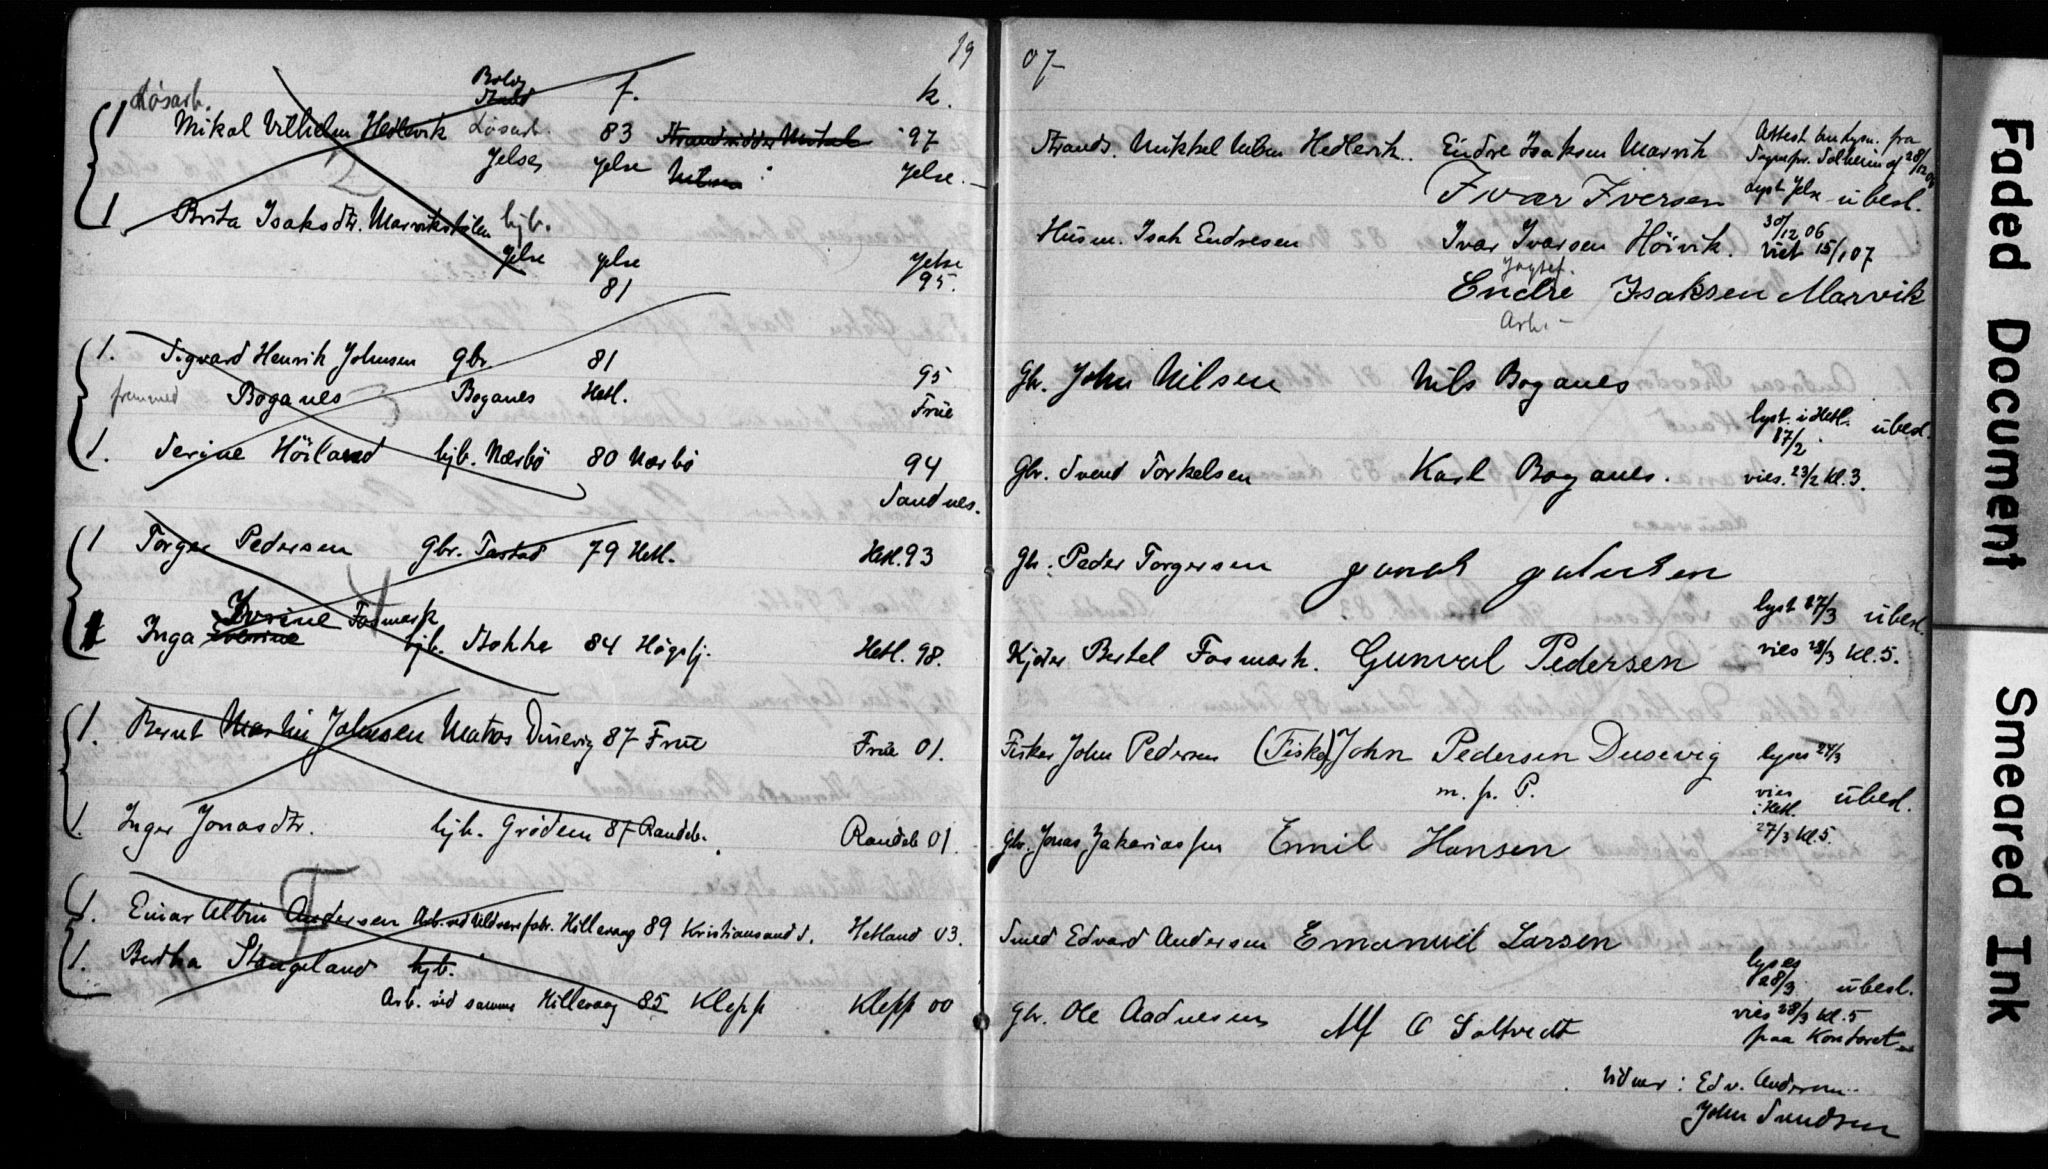 19 07
f. k.
Løsarb.
Mikal Vilhelm Hedlevik Løsarb. 83 97 Strands. Mikkel Hedlevik. Endre Isaksen Marvik Attest
Jelse Jelse Jelse.
Ivar Iversen lyst Jelse ubesl.
1 Brita Isaksdtr. Marvikstølen hjb. Husm. Isak Endresen Ivar Ivarsen Höivik. 30/12 06 viet 15/1 07
Jelse Jelse Jelse
81 95. Endre Isaksen Marvik
Arb.
1. Sigvard Henrik Johnsen gbr 81 95 Gbr. John Nilsen Nils Boganes
fremmed Boganes Boganes Hetl. Frue lyst. i Hetl. 17/2 ubesl.
1. Serine Höiland hjb. Nærbö 80 Nærbö 94 Gbr. Svend Torkelsen Karl Boganes. vies. 23/2 Kl. 3.
Sandnes.
1 Torger Pedersen Gbr. Tastad 79 Hetl. Hetl. 93 Gbr. Peder Torgersen
lyst 17/3 ubesl.
1 Inga Fosmark hjb. Stokke 84 Högsfj. Hetl. 98. Bertel Fosmark. Gunval Pedersen vies 28/3 Kl. 5.
1. Bernt Martin Johnsen Matros Dusevig 87 Frue Frue 01. Fisker John Pedersen (Fisker) John Pedersen Dusevig lyses 24/3
m. p. P. vies i Hetl. ubesl.
1. Inger Jonasdtr. hjb. Grödem 87 Randeb. Randeb 01. Gbr. Jonas Zakariassen Emil Hansen 27/3 Kl. 5.
1. Einar Albin Andersen Arb. ved Uldvarefabr. Hillevaag 89 Kristiansand S. Hetland 03. Smed Edvard Andersen Emanuel Larsen
1. Bertha Stangeland hjb. lyses 28/3 ubesl.
Arb. ved samme Hillevaag 85 Klepp Klepp 00 Gbr. Ole Aadnesen Alf O Saltvedt vies 28/3 Kl. 5
paa Kontoret
Vidner: Edv. Andersen
John Svendsen
Faded Document
Smeared Ink